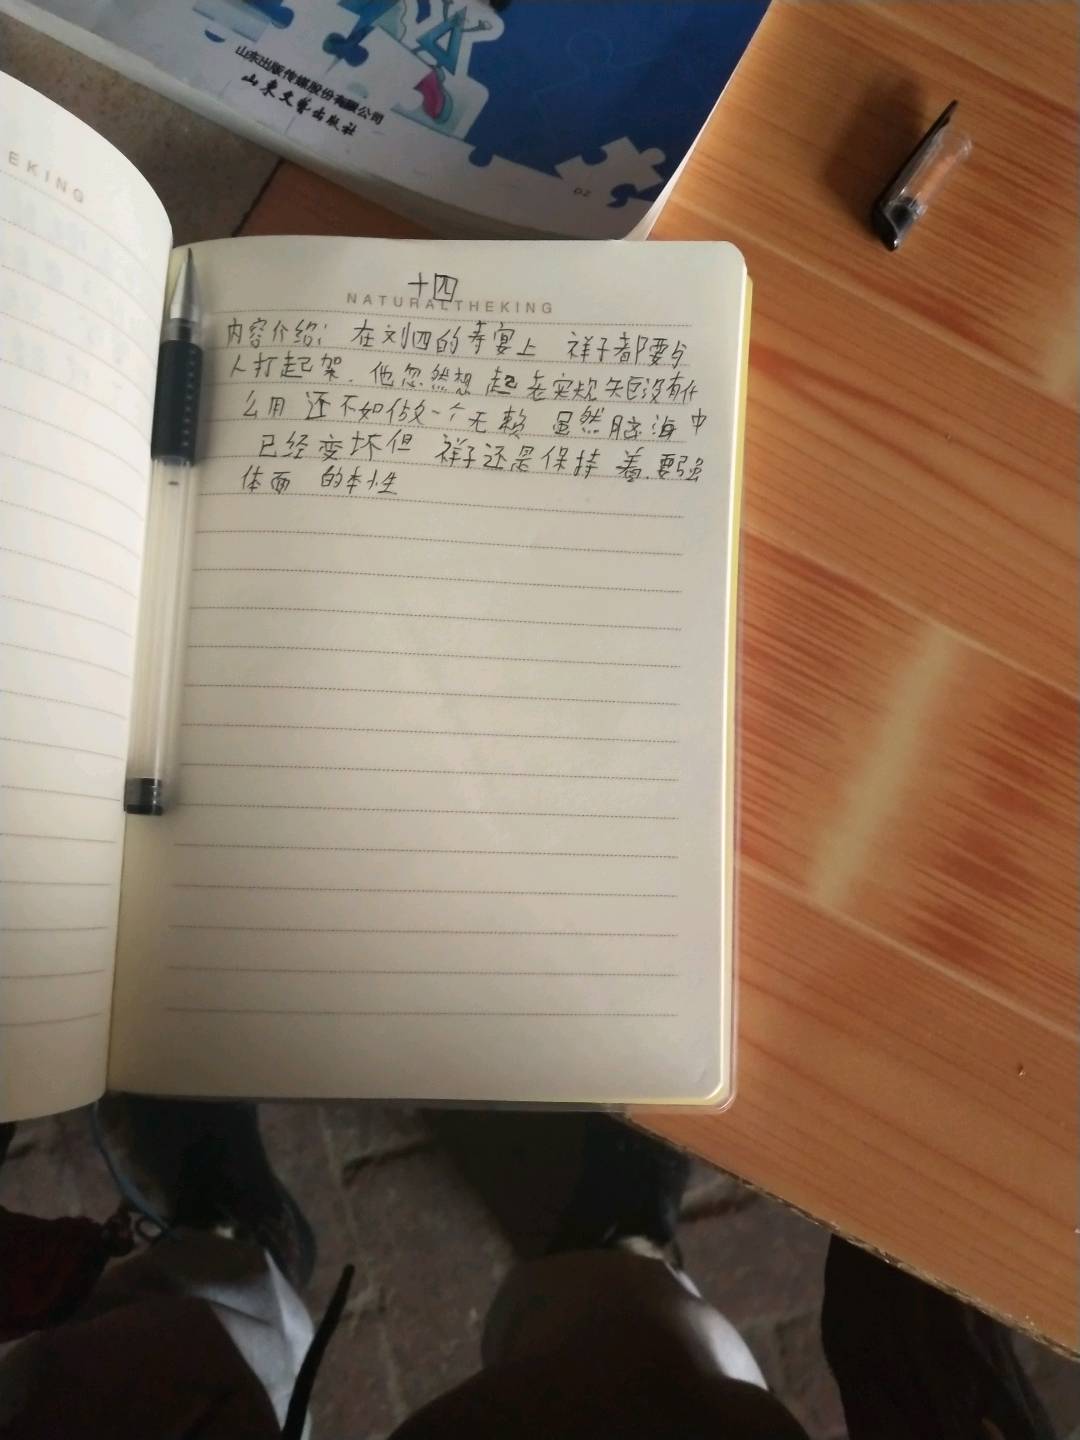 山东出版传媒股份有限公司
山东文艺出版社
02
EKING
十四
NATURALTHEKING
内容介绍: 在刘四的寿宴上 祥子都要与
人打起架. 他忽然想起老实规矩没有什
么用 还不如做一个无赖 虽然脑海中
已经变坏但 祥子还是保持着.要强
体面 的本性